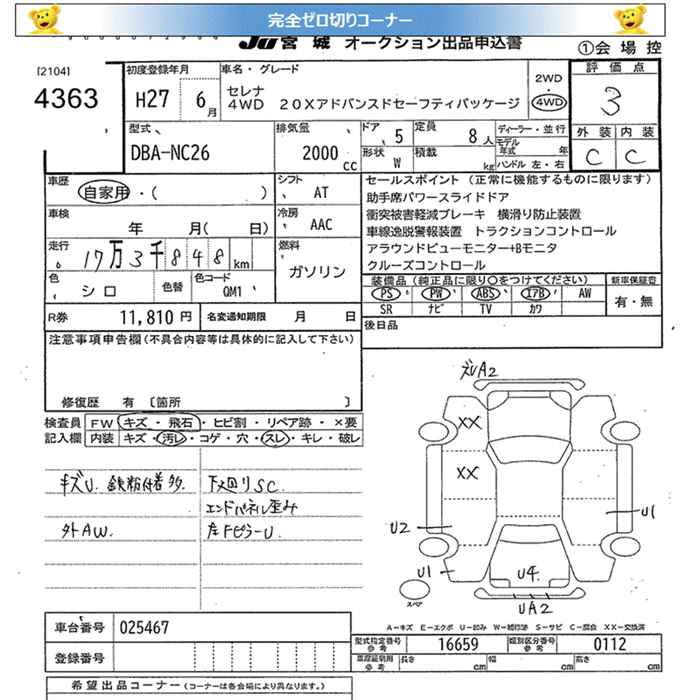 完全ゼロ切りコーナー
JU 宮城 オークション出品申込書
①会場控
[2104]
4363
初度登録年月
H27 6月
車名・グレード
セレナ
4WD 20Xアドバンスドセーフティパッケージ
2WD
・
4WD
評価点
3
外装 内装
C C
型式
DBA-NC26
排気量
2000 cc
ドア 5
定員 8人
形状 W
積載 kg
ディーラー・並行
モデル年式 年
ハンドル 左・右
車歴
自家用・( )
シフト
AT
車検
年 月( 日)
冷房
AAC
走行
17万3千848km
燃料
ガソリン
色
シロ
色替
色コード
QM1
R券 11,810円
名変通知期限 月 日
セールスポイント (正常に機能するものに限ります)
助手席パワースライドドア
衝突被害軽減ブレーキ 横滑り防止装置
車線逸脱警報装置 トラクションコントロール
アラウンドビューモニター+Bモニタ
クルーズコントロール
装備品(純正品に限り○をつけてください)
新車保証書
PS PW ABS エアB AW
有・無
SR ナビ TV カワ
後日品
注意事項申告欄(不具合内容等は具体的に記入して下さい)
修復歴 有 〔箇所 〕
検査員
記入欄
FW キズ・飛石・ヒビ割・リペア跡・×要
内装 キズ・汚レ・コゲ・穴・スレ・キレ・破レ
キズU. 鉄粉付着多.
外AW.
下廻りSC
エンドパネル歪み
左FピラーU
ズレA2
XX
XX
U2
U1
U1
U4
UA2
スペア
A-キズ E-エクボ U-凹み W-補修跡 S-サビ C-腐食 XX-交換済
車台番号 025467
登録番号
型式指定番号
参考
16659
類別区分番号
参考
0112
車庫証明用
参考
長さ cm 幅 cm 高さ cm
希望出品コーナー (コーナーは各会場により異なります。)